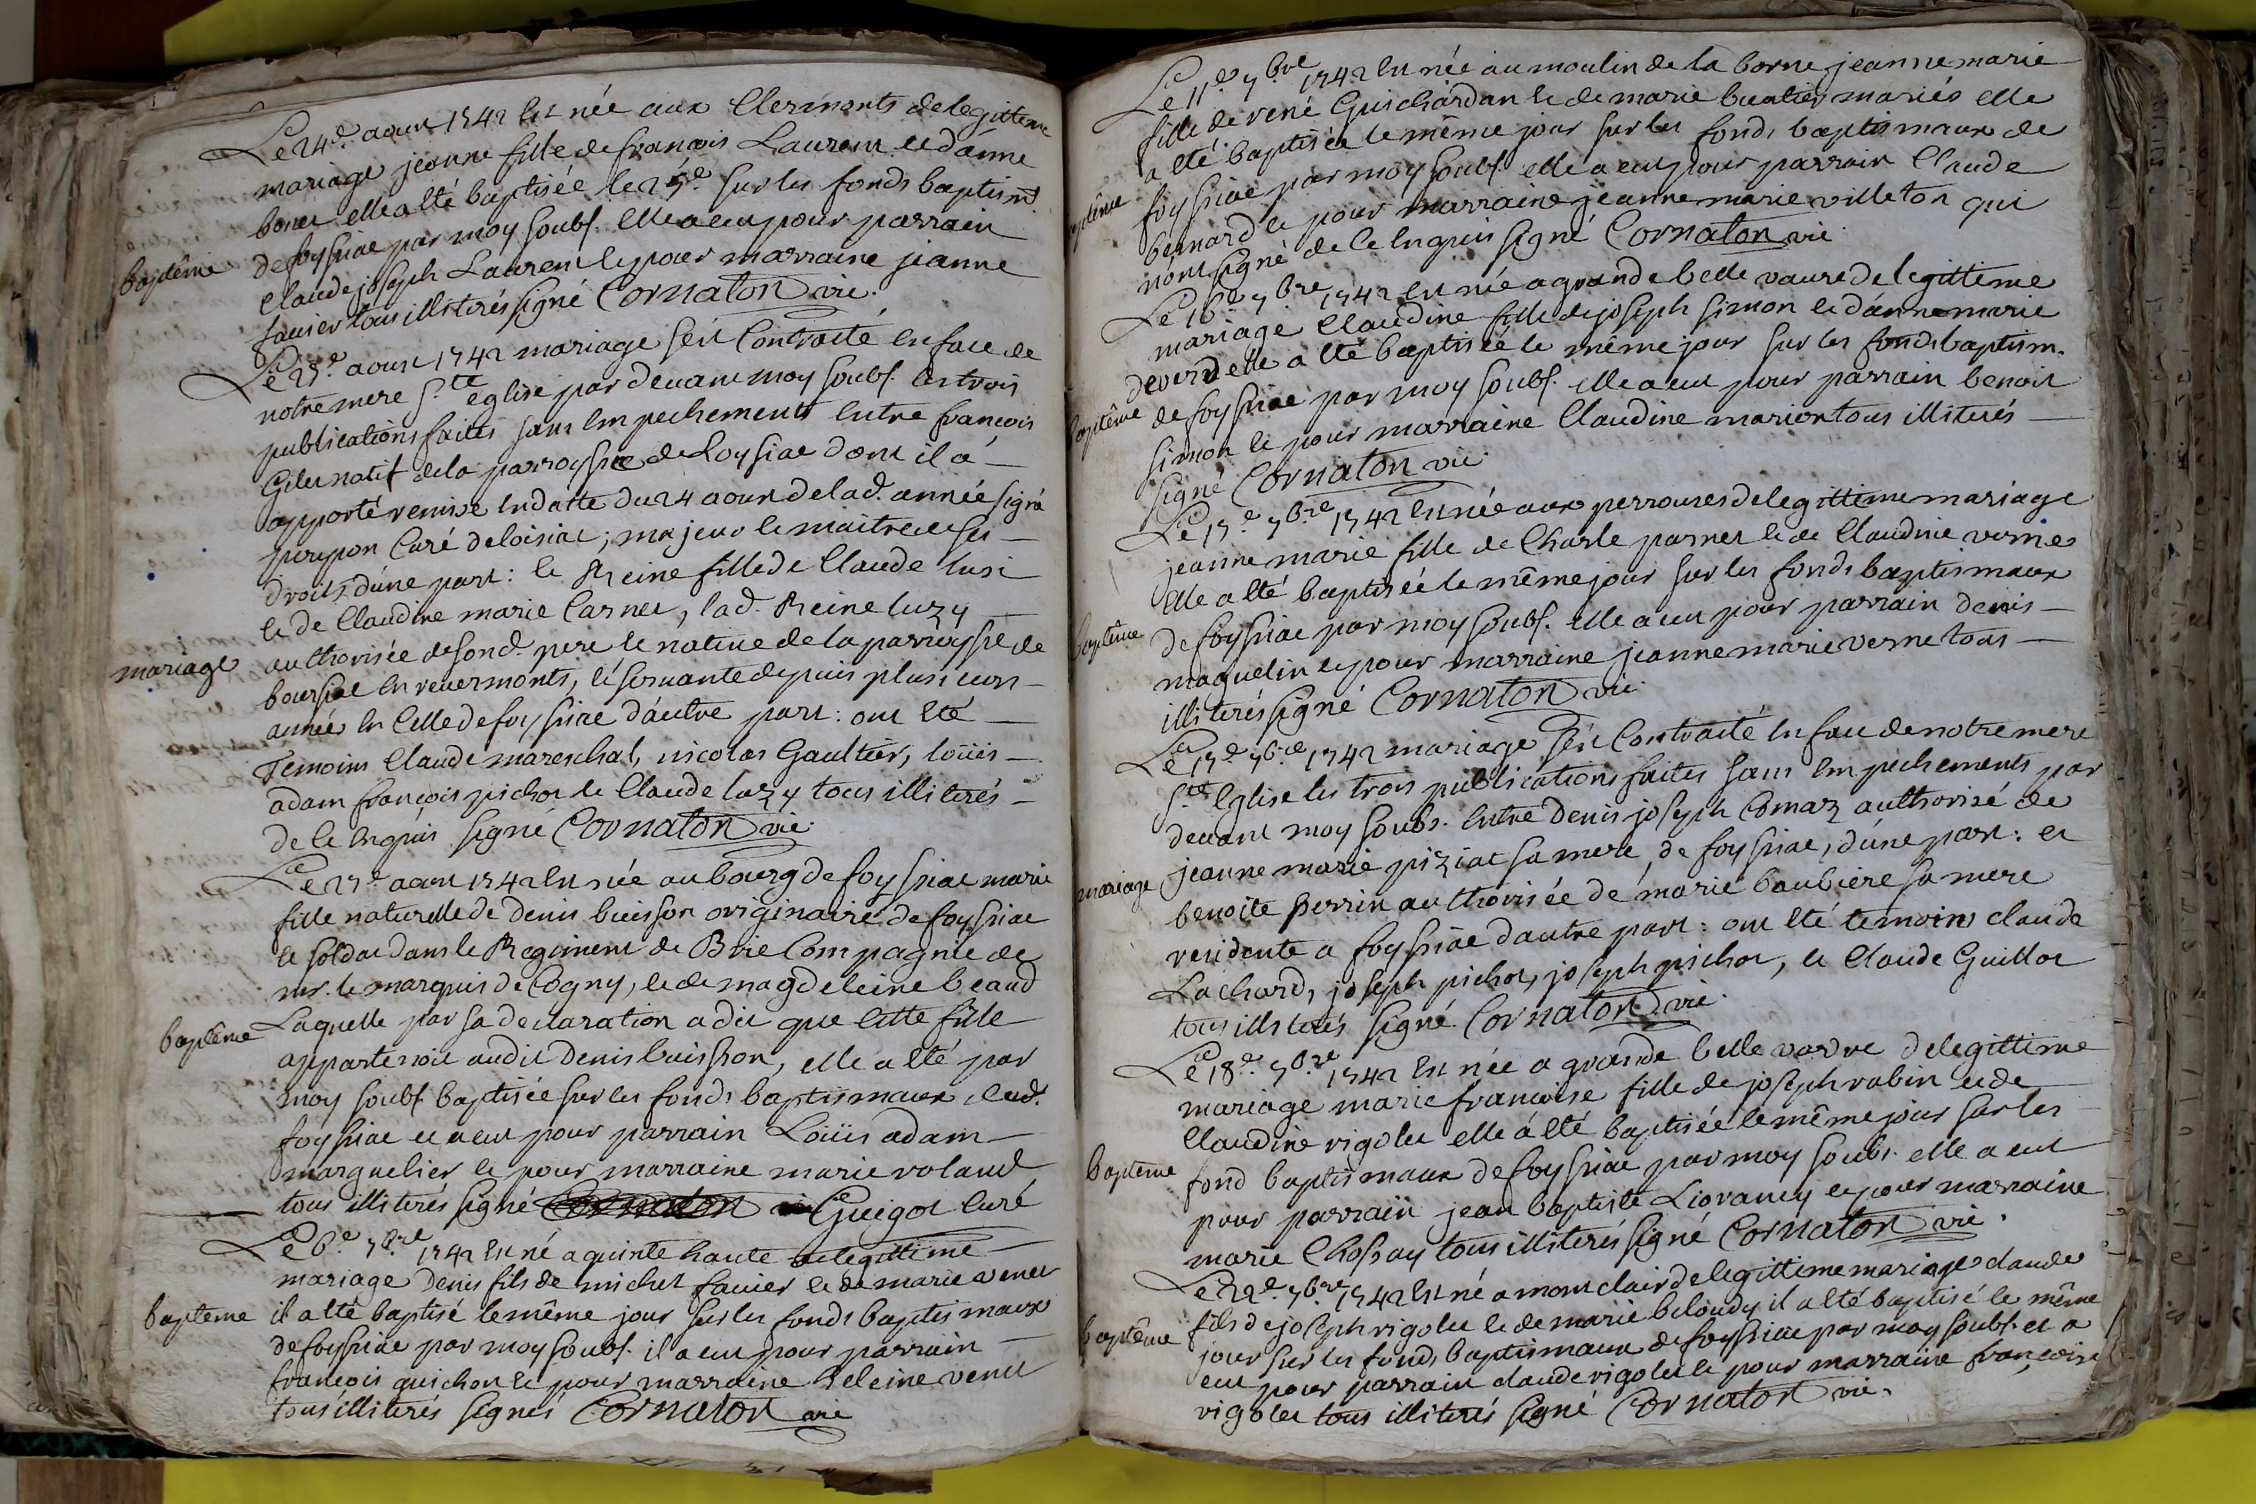 Le 24e. aoust 1742 est née aux Clermonts de legittime
mariage jeanne fille de françois Laurent et d'anne
boner elle a été baptisée le 25e. sur les fonds baptism
baptême
de foyssiac par moy soubs. elle a eu pour parrain
Claude joseph Laurent et pour marraine jeanne
favier tous illiterés signé Cornaton vic.
Le 25e. aoust 1742 mariage s'est Contracté en face de
notre mere Ste. eglise par devant moy soubs. les trois
publications faites sans empechements entre françois
Gilet natif de la parroysse de Loysiac dont il a
apporté remise en datte du 24 aoust de lad. année signé
Curé de loisiac, majeur et maitre de ses
droits d'une part : et Reine fille de Claude lusi
et de Claudine marie Carner, lad. Reine luzy
authorisée de sond. pere et native de la parroysse de
mariage
en revermonts, et servante depuis plusieurs
année en Celle de foyssiac d'autre part : ont été
Temoins Claude mareschal, nicolas Gaultier, loüis
adam françois pichot et Claude luzy tous illiterés
de Ce enquis signé Cornaton vic.
Le 27e. aoust 1742 est née au bourg de foyssiac marie
fille naturelle de denis buisson originaire de foyssiac
et soldat dans le Regiment de Brie Compagnie de
mr. le marquis de Cogny, et de magdeleine beaud
baptême
Laquelle par sa declaration a dit que Cette fille
appartenoit audit denis buisson, elle a été par
moy soubs. baptisée sur les fonds baptismaux dud.
foyssiac et a eu pour parrain Loüis adam
marguelier et pour marraine marie roland
tous illiterés signé Cornaton Guigot Curé
Le 6e. 7bre 1742 est né a quinte haute de legittime
mariage denis fils de michel favier et de marie venet
bapteme
il a été baptisé le même jour sur les fonds baptismaux
de foyssiac par moy soubs. il a eu pour parrain
françois guichon et pour marraine heleine venet
tous illiterés signés Cornaton vic
Le 11e. 7bre 1742 est née au moulin de la borne jeanne marie
fille de rené Guichardan et de marie mariés elle
a été baptisée le même jour sur les fonds baptismaux de
foyssiac par moy soubs. elle a eu pour parrain Claude
bernard et pour marraine jeanne marie villeton qui
n'ont signé de Ce enquis signé Cornaton vic.
Le 16e. 7bre 1742 est née a grande belle vavre de legittime
mariage Claudine fille de joseph simon et d'anne marie
elle a été baptisée le même jour sur les fonds baptism.
baptême
de foyssiac par moy soubs. elle a eu pour parrain benoit
simon et pour marraine Claudine marion tous illiterés
signé Cornaton vic.
Le 17e. 7bre 1742 est née aux perrouses de legittime mariage
jeanne marie fille de Charle parner et de Claudine verne
elle a été baptisée le même jour sur les fonds baptismaux
baptême
de foyssiac par moy soubs. elle a eu pour parrain denis
maguelin et pour marraine jeanne marie verne tous
illiterés signé Cornaton vic.
Le 17e. 7bre 1742 mariage s'est Contracté en face de notre mere
Ste. Eglise les trois publications faites sans empechements par
devant moy soubs. entre denis joseph Comaz authorisé de
mariage
jeanne marie piziat sa mere, de foyssiac, d'une part : et
benoite perrin authorisée de marie baubiere sa mere
residente a foyssiac d'autre part : ont été temoins claude
Lachard, joseph pichot, joseph pichot, et Claude Guillot
tous illiterés signé Cornaton vic.
Le 18e. 7bre 1742 est née a grande belle vavre de legittime
mariage marie françoise fille de joseph rabin et de
Claudine rigolet elle a été baptisée le même jour sur les
bapteme
fond baptismaux de foyssiac par moy soubs. elle a eut
pour parrain jean baptiste Liorancy et pour marraine
marie Chossay tous illiterés signé Cornaton vic.
Le 22e. 7bre 1742 est né a montclair de legittime mariage claude
fils de joseph rigolet et de marie beloudy il a été baptisé le même
baptême
jour sur les fonds baptismaux de foyssiac par moy soubs. et a
eut pour parrain claude rigolet et pour marraine françoise
rigolet tous illiterés signé Cornaton vic.